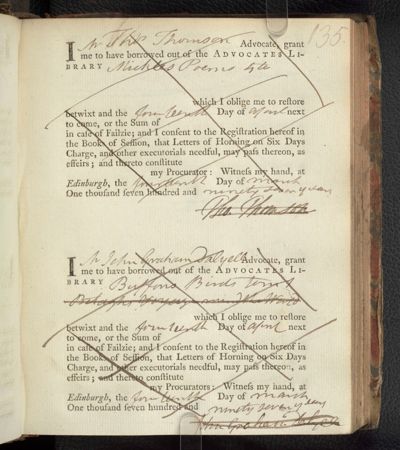 135
I Mr Tho Thomson Advocate, grant
me to have borrowed out of the ADVOCATES LI-
BRARY Mickles Poems 4to
which I oblige me to reſtore
betwixt and the fourteenth Day of april next
to come, or the Sum of
in caſe of Failzie; and I conſent to the Regiſtration hereof in
the Books of Seſſion, that Letters of Horning on Six Days
Charge, and other executorials needful, may paſs thereon, as
effeirs; and thereto conſtitute
my Procurator: Witneſs my hand, at
Edinburgh, the fourteenth Day of march
One thouſand ſeven hundred and ninety seven years
Tho. Thomson
I Mr John Graham Dalyell Advocate, grant
me to have borrowed out of the ADVOCATES LI-
BRARY Buffons Birds tom 1
which I oblige me to reſtore
betwixt and the fourteenth Day of april next
to come, or the Sum of
in caſe of Failzie; and I conſent to the Regiſtration hereof in
the Books of Seſſion, that Letters of Horning on Six Days
Charge, and other executorials needful, may paſs thereon, as
effeirs; and thereto conſtitute
my Procurator: Witneſs my hand, at
Edinburgh, the fourteenth Day of march
One thouſand ſeven hundred and ninety seven years
John Graham Dalyell